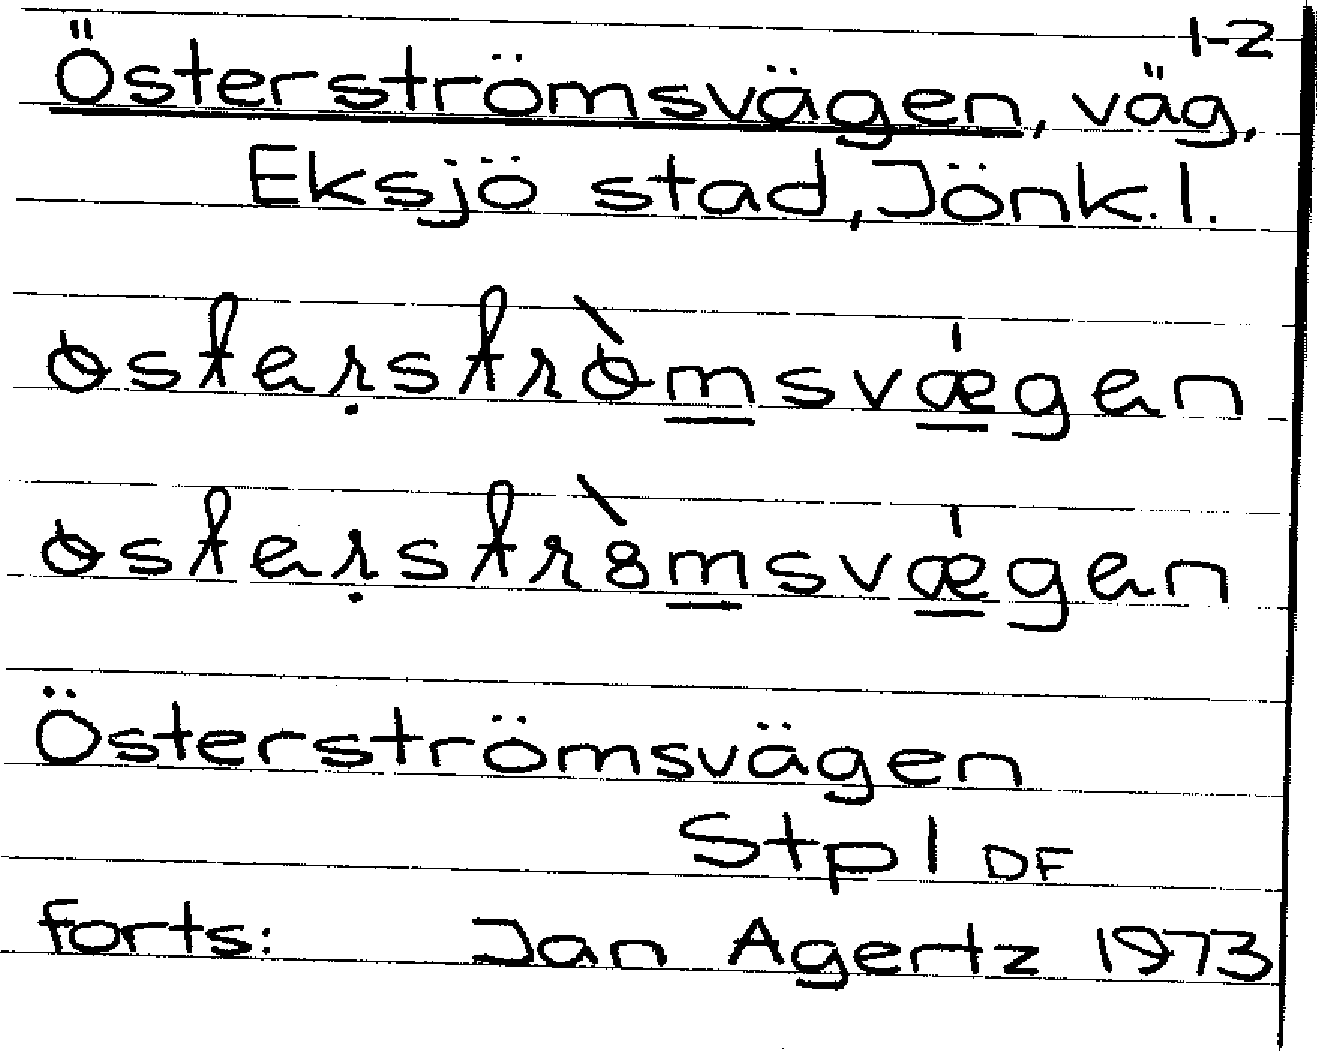 1-2
Österströmsvägen, väg,
Eksjö stad, Jönk. l.
østerṣtrø̀m̲svǽ̲gen
østerṣtr8̀m̲svǽ̲gen
Österströmsvägen
Stpl DF
forts: Jan Agertz 1973